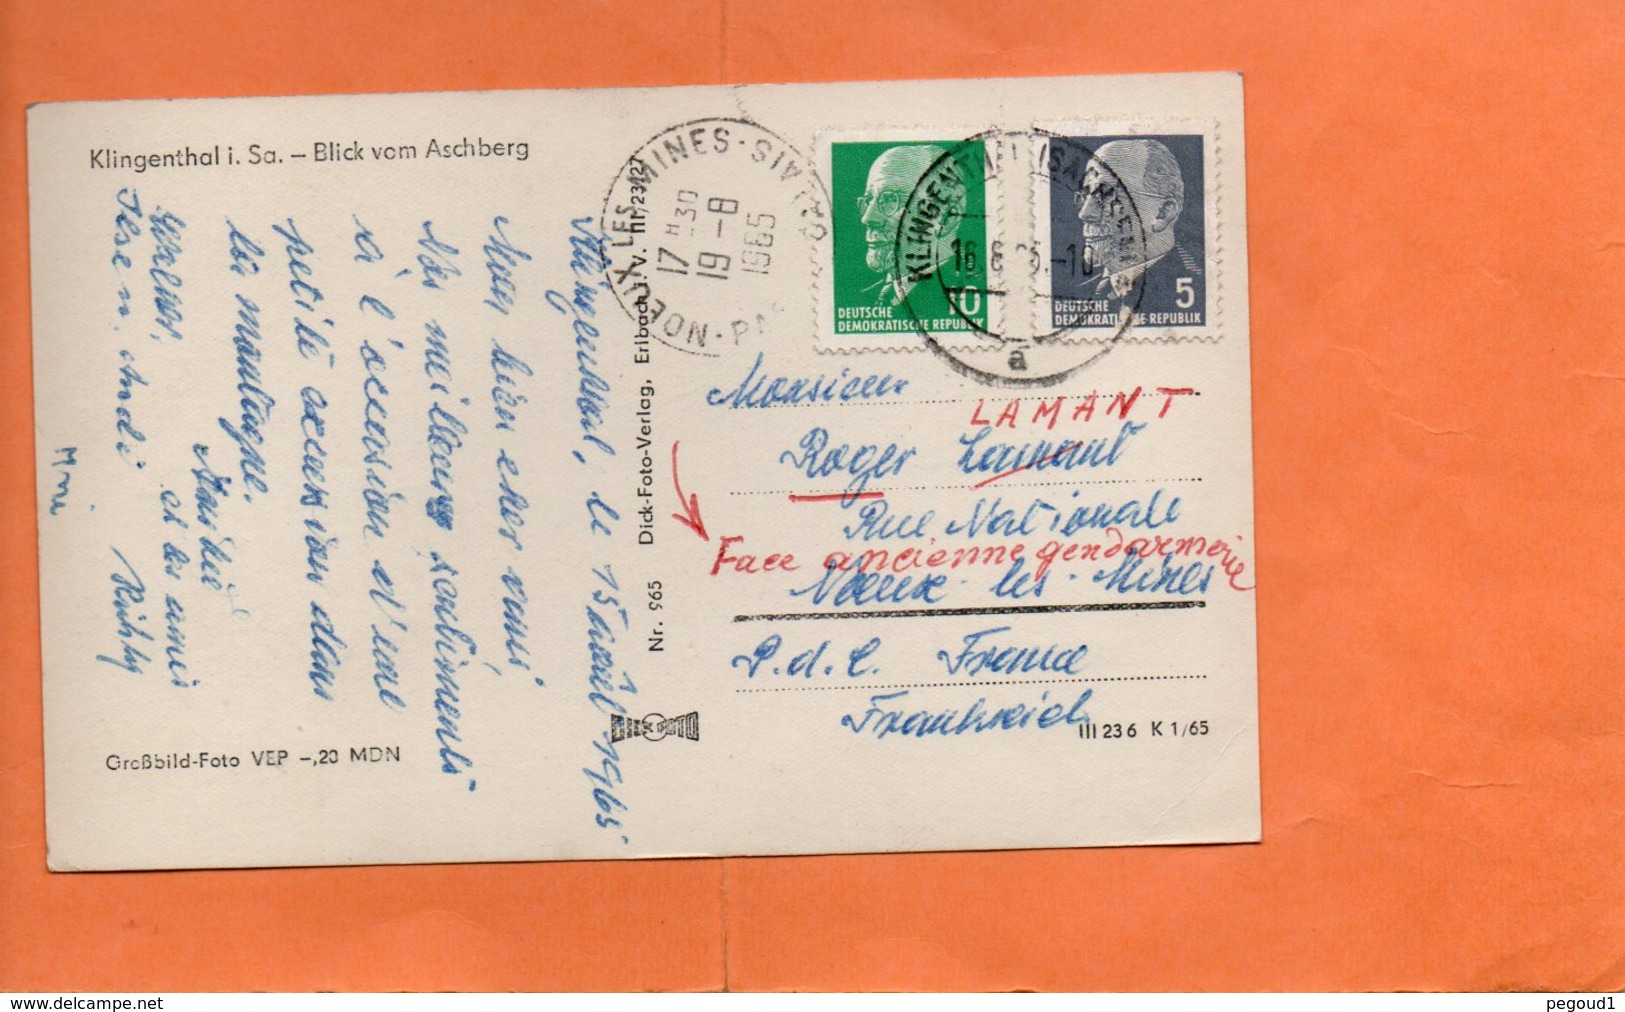 Klingenthal i. Sa. – Blick vom Aschberg
Klingenthal, le 15 août 1965
Mon bien cher ami,
Nos meilleurs sentiments
à l'occasion d'une
petite excursion dans
la montagne.
et les amis
Walter,
Ilse n. André
Großbild-Foto VEP –,20 MDN
Nr. 965 Dick-Foto-Verlag, Erlbach i. V. III/23/27
DICK FOTO
NOEUX LES MINES - PAS
17 H 30
19 - 8
1965
DEUTSCHE
DEMOKRATISCHE REPUBLIK
10
DEUTSCHE
DEMOKRATISCHE REPUBLIK
5
KLINGENTHAL (SACHSEN)
16.8.65.-10
a
Monsieur
LAMANT
Roger Lamant
Rue Nationale
Face ancienne gendarmerie
Noeux-les-Mines
P.d.C. France
Frankreich
III 23 6 K 1/65
pegoud1